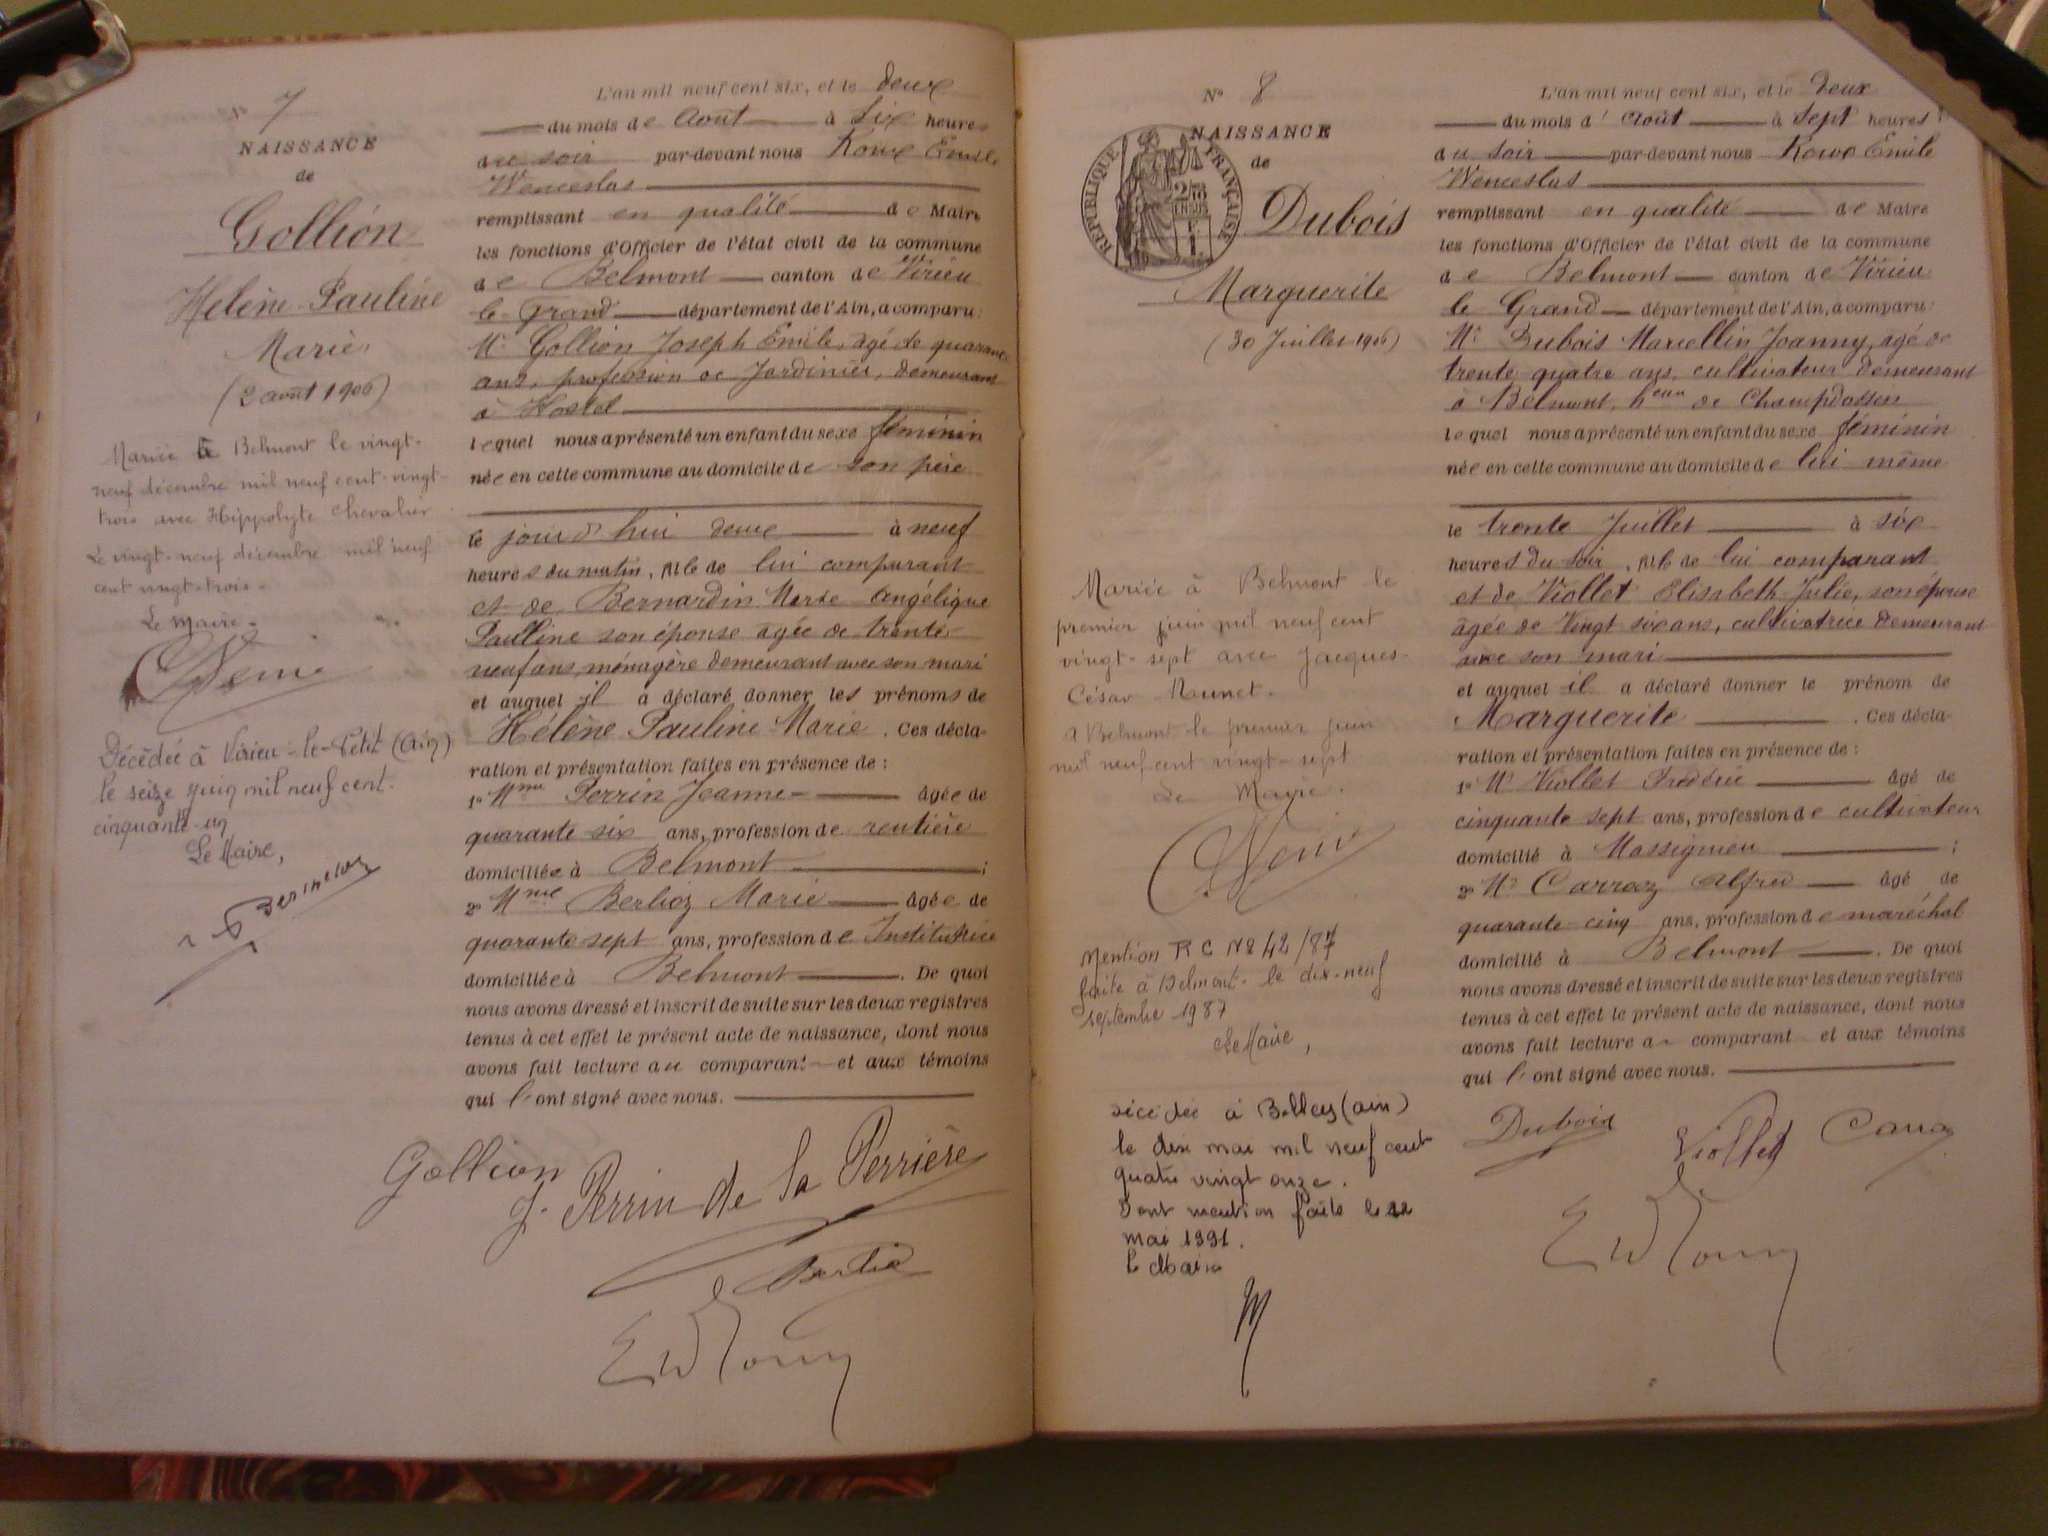 N° 7
NAISSANCE
de
Gollion
Hélène Pauline
Marie
(2 août 1906)
Mariée à Belmont le vingt-
neuf décembre mil neuf cent vingt-
trois avec Hippolyte Chevalier
Le vingt-neuf décembre mil neuf
cent vingt-trois.
Le Maire.
Décédée à Virieu-le-Petit (Ain)
le seize juin mil neuf cent
cinquante-un
Le Maire,
L'an mil neuf cent six, et le deux
du mois de Août à Six heures
du soir par-devant nous Roux Emile
Wenceslas
remplissant en qualité de Maire
les fonctions d'Officier de l'état civil de la commune
de Belmont canton de Virieu
le Grand département de l'Ain, a comparu:
Mr Gollion Joseph Emile, âgé de quarante
ans, profession de Jardinier, demeurant
à Hostel
lequel nous a présenté un enfant du sexe féminin
née en cette commune au domicile de son père
le jour d'hui deux à neuf
heures du matin, fille de lui comparant
et de Bernardin Marie Angélique
Pauline son épouse âgée de trente
neuf ans, ménagère demeurant avec son mari
et auquel il a déclaré donner les prénoms de
Hélène Pauline Marie. Ces décla-
ration et présentation faites en présence de:
1° Mme Perrin Jeanne âgée de
quarante six ans, profession de rentière
domiciliée à Belmont;
2° Mme Berlioz Marie âgée de
quarante sept ans, profession de Institutrice
domiciliée à Belmont. De quoi
nous avons dressé et inscrit de suite sur les deux registres
tenus à cet effet le présent acte de naissance, dont nous
avons fait lecture au comparant et aux témoins
qui l'ont signé avec nous.
Gollion
J. Perrin de la Perrière
N° 8
NAISSANCE
de
RÉPUBLIQUE FRANÇAISE
Dubois
Marguerite
(30 Juillet 1906)
Mariée à Belmont le
premier juin mil neuf cent
vingt-sept avec Jacques
César Mounet.
A Belmont le premier juin
mil neuf cent vingt-sept
Le Maire.
Mention RC N° 42/87
faite à Belmont le dix-neuf
septembre 1987
Le Maire,
décédée à Belley (ain)
le dix mai mil neuf cent
quatre vingt onze.
Dont mention faite le 22
mai 1991.
le Maire
L'an mil neuf cent six, et le deux
du mois d'Août à Sept heures
du soir par-devant nous Roux Emile
Wenceslas
remplissant en qualité de Maire
les fonctions d'Officier de l'état civil de la commune
de Belmont canton de Virieu
le Grand département de l'Ain, a comparu:
Mr Dubois Marcellin Joanny, âgé de
trente quatre ans, cultivateur demeurant
à Belmont, heau de Champdossin
lequel nous a présenté un enfant du sexe féminin
née en cette commune au domicile de lui même
le trente Juillet à six
heures du soir, fille de lui comparant
et de Viollet Elisabeth Julie, son épouse
âgée de Vingt six ans, cultivatrice demeurant
avec son mari
et auquel il a déclaré donner le prénom de
Marguerite. Ces décla-
ration et présentation faites en présence de:
1° Mr Viollet Frédéric âgé de
cinquante sept ans, profession de cultivateur
domicilié à Massignieu;
2° Mr Carraz Alfred âgé de
quarante-cinq ans, profession de maréchal
domicilié à Belmont. De quoi
nous avons dressé et inscrit de suite sur les deux registres
tenus à cet effet le présent acte de naissance, dont nous
avons fait lecture au comparant et aux témoins
qui l'ont signé avec nous.
Dubois Viollet Carraz